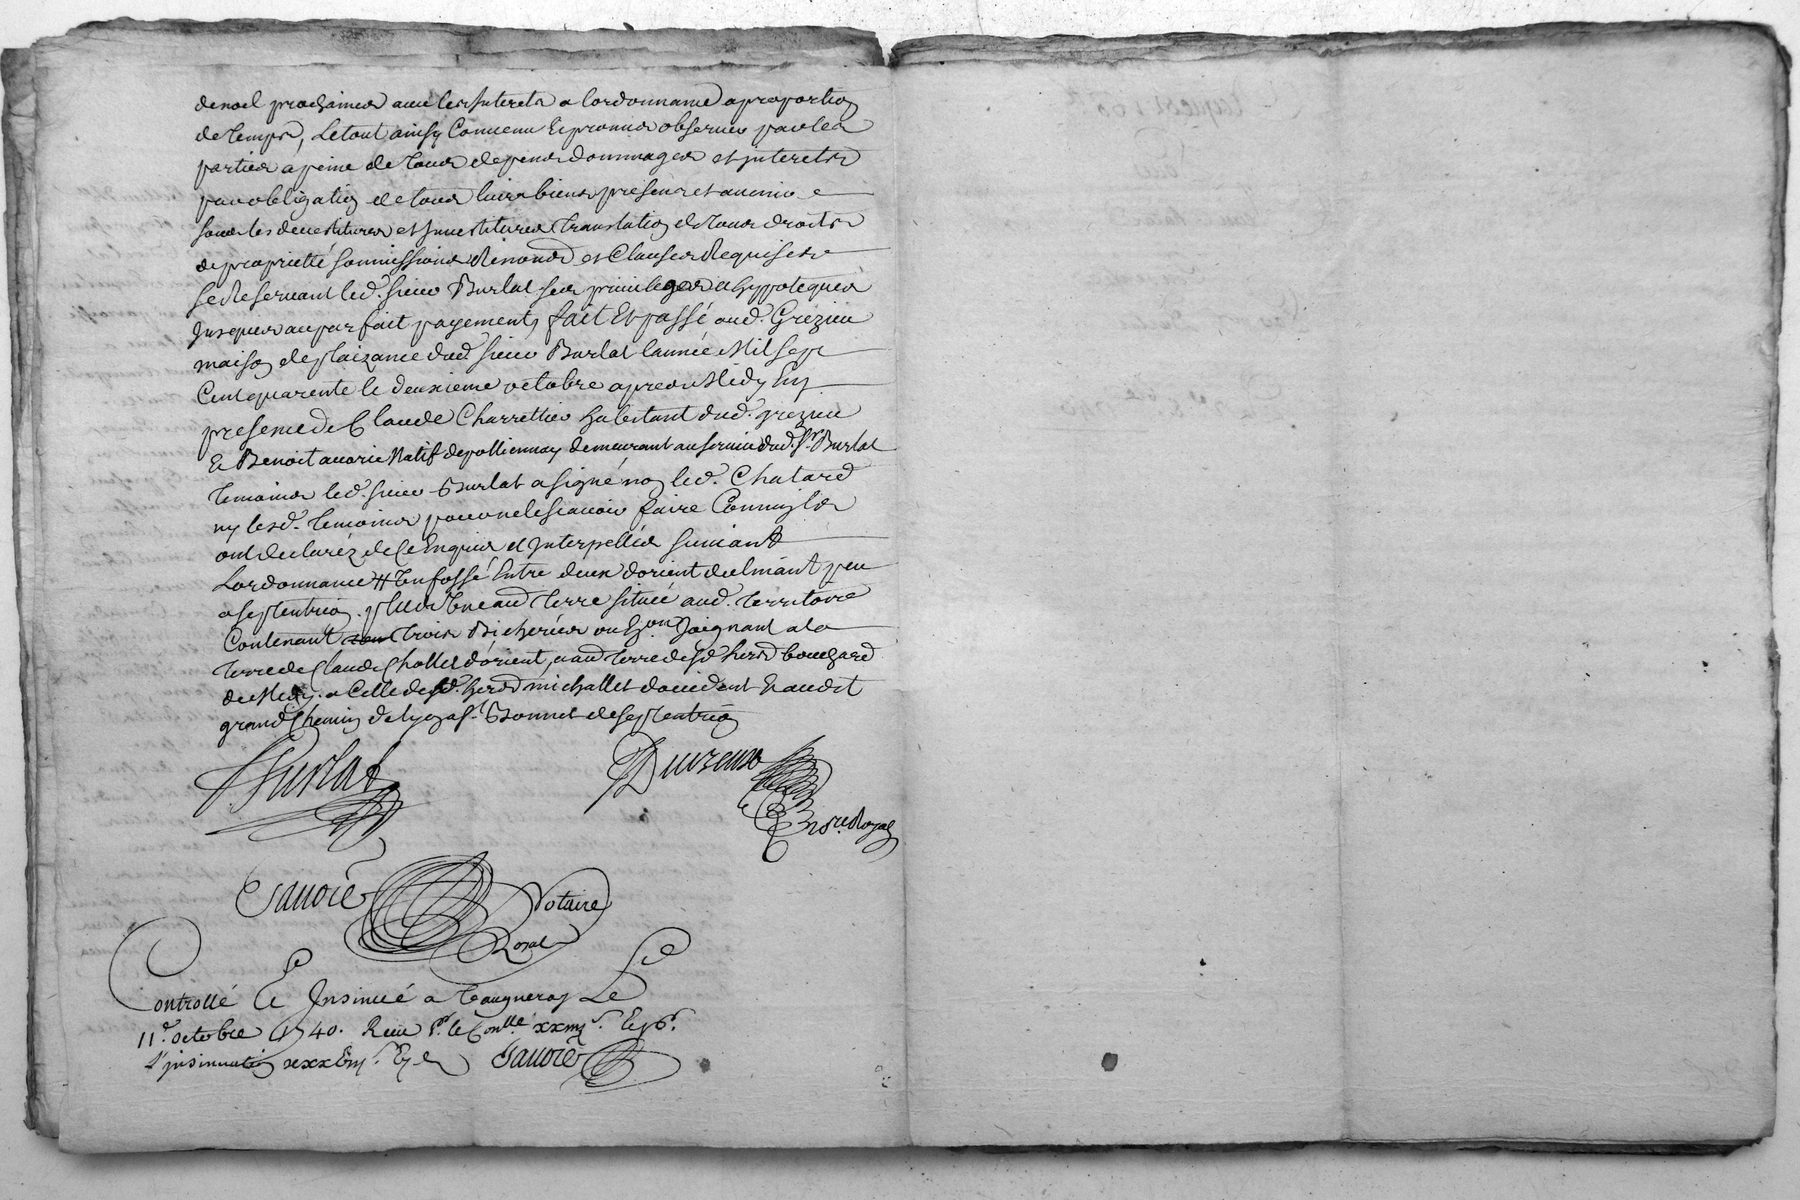 denoel prochaines avec les Interets a lordonnance a proportion
de temps, Le tout ainsy Convenu Et promis observer par les
parties a peine de tous depens dommages et interets
par obligation de tous leurs biens presens et avenir
sous les devestitures et Investitures translation de tous droits
de proprietté soumissions Renond. et Clauses Requises
se Reservant led. sieur Burlat ses privileges et hypoteques
Jusques au parfait payement, fait Et passé aud. Grézieu
maison de plaizance dud. sieur Burlat lannée Mil sept
Cent quarente le deuxieme octobre apres Midy En
presence de Claude Charrettier habitant dud. grezieu
Et Benoit auorie Natif de polliennay demeurant au service dud. Sr. Burlat
temoins led. sieur Burlat a signé non led. Chatard
ny lesd. temoins pour ne le scavoir faire Comme ils
ont declaréz de Ce Enquis et Interpellés suivant
Lordonnance # Un fossé Entre deux dorient declinant peu
a septentrion. plus Une aud terre située aud. territoire
Contenant trois Bicherées ou Eon Joignant a la
terre de Claude Chollet d'orient, a aud terre desd. hers bouchard
de Midy. a Celle desd. hers michallet doccident Et audit
grand Chemin de lyon a St. Bonnet de septentrion
Burlat
nore. Royal
Savoie Notaire
Royal
Controllé Et Insinué a Vaugneray Le
11e. octobre 1740. Receu pr. le Conlle
L'insinuation Savoie